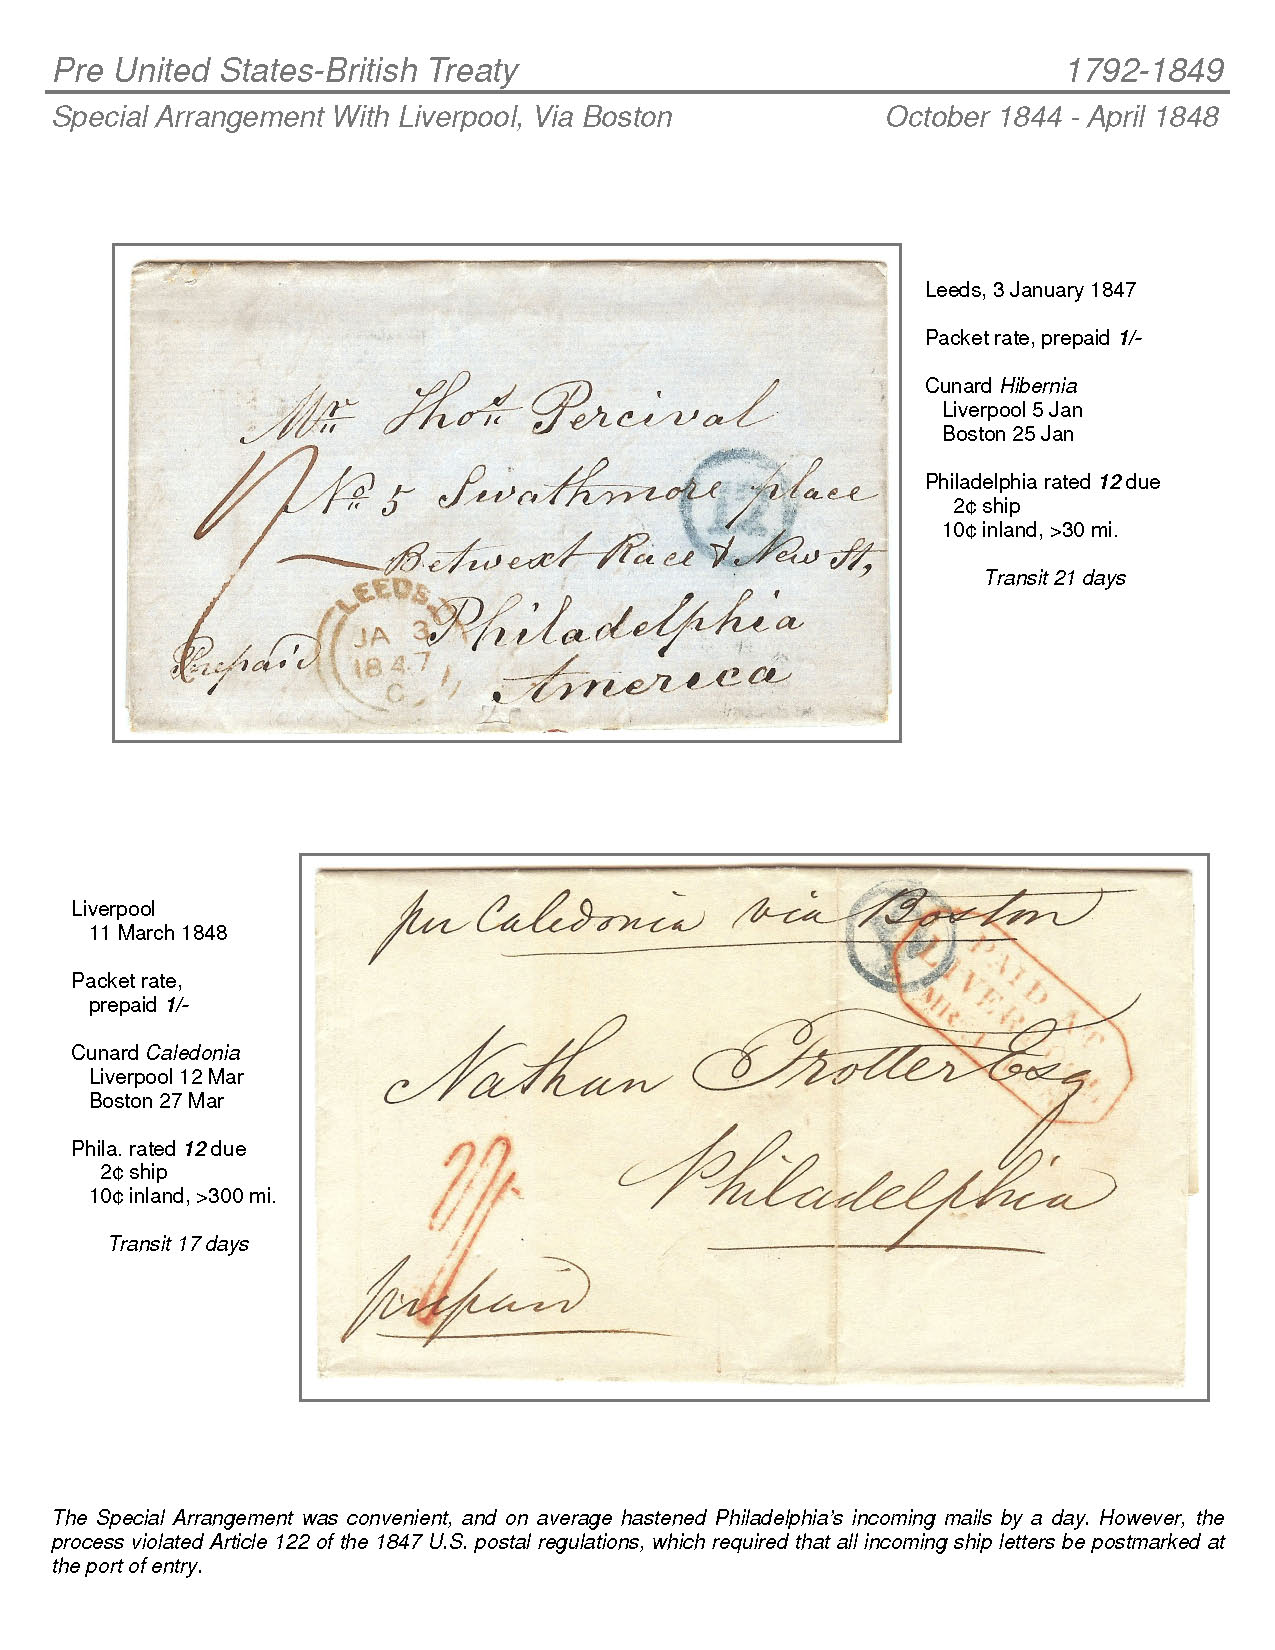 Pre United States-British Treaty 1792-1849
Special Arrangement With Liverpool, Via Boston October 1844 - April 1848
Mr. Thos. Percival
No. 5 Swathmore place
Betwext Race & New St,
Philadelphia
America
1/-
Prepaid
12
LEEDS
JA 3
1847
C
Leeds, 3 January 1847
Packet rate, prepaid 1/-
Cunard Hibernia
Liverpool 5 Jan
Boston 25 Jan
Philadelphia rated 12 due
2¢ ship
10¢ inland, >30 mi.
Transit 21 days
Liverpool
11 March 1848
Packet rate,
prepaid 1/-
Cunard Caledonia
Liverpool 12 Mar
Boston 27 Mar
Phila. rated 12 due
2¢ ship
10¢ inland, >300 mi.
Transit 17 days
per Caledonia via Boston
PAID AT
LIVERPOOL
Nathan Trotter Esq
Philadelphia
1/-
prepaid
The Special Arrangement was convenient, and on average hastened Philadelphia's incoming mails by a day. However, the
process violated Article 122 of the 1847 U.S. postal regulations, which required that all incoming ship letters be postmarked at
the port of entry.